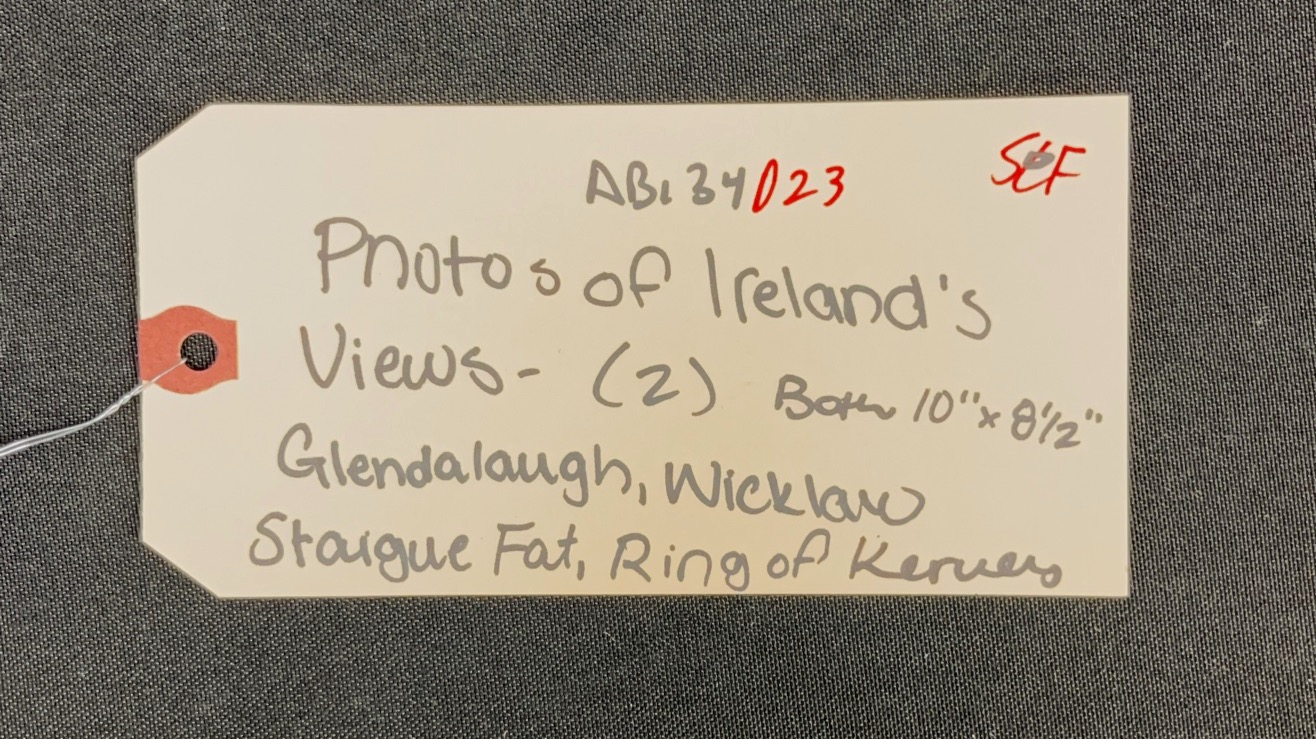 AB134023 SCF
Photos of Ireland's
Views- (2) Both 10" x 8 1/2"
Glendalaugh, Wicklaw
Staigue Fat, Ring of Keruey